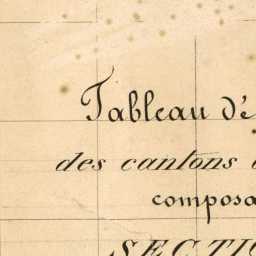 Tableau d'é
des cantons
composa
SECTIO